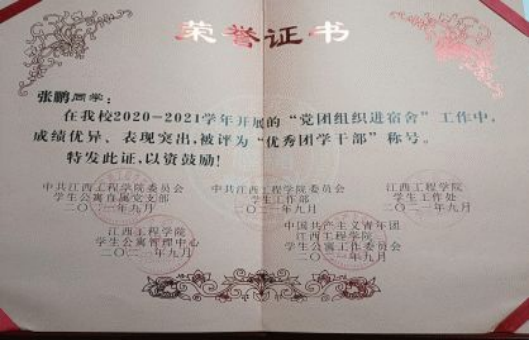 荣誉证书
张鹏同学：
在我校2020-2021学年开展的“党团组织进宿舍”工作中，
成绩优异、表现突出，被评为“优秀团学干部”称号。
特发此证，以资鼓励！
中共江西工程学院委员会
学生公寓直属党支部
二〇二一年九月
中共江西工程学院委员会
学生工作部
二〇二一年九月
江西工程学院
学生工作处
二〇二一年九月
江西工程学院
学生公寓管理中心
二〇二一年九月
中国共产主义青年团
江西工程学院
学生公寓工作委员会
二〇二一年九月